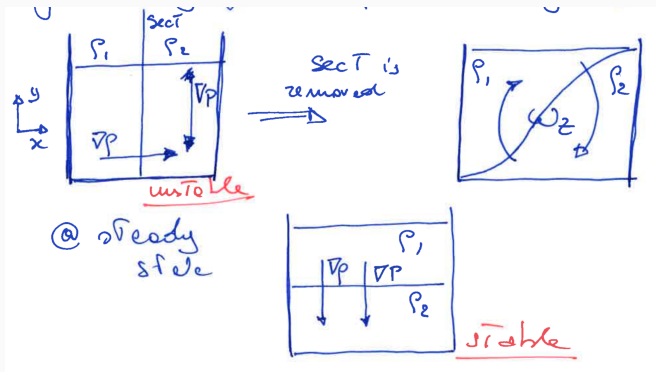 secT
ρ₁ ρ₂
∇p
y
x
∇ρ
unstable
secT is
removed
ρ₁
ρ₂
ω_z
@ steady
state
ρ₁
∇ρ ∇P
ρ₂
stable